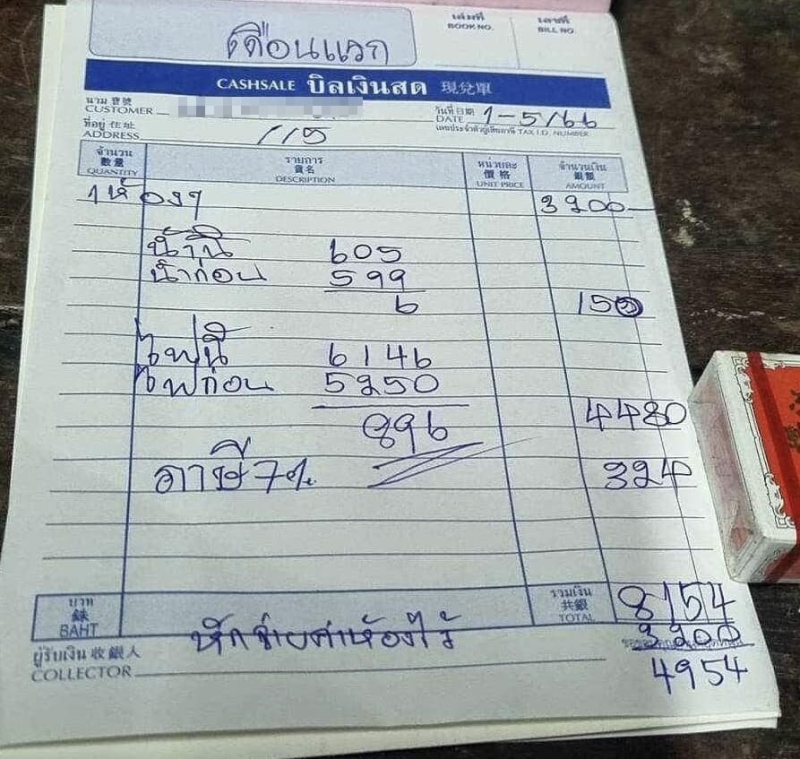 เดือนแรก
เล่มที่ BOOK NO.
เลขที่ BILL NO.
CASHSALE บิลเงินสด 現兌單
นาม 寶號 CUSTOMER
วันที่ 日期 DATE 1-5/66
ที่อยู่ 住址 ADDRESS 115
เลขประจำตัวผู้เสียภาษี TAX I.D. NUMBER
จำนวน 數量 QUANTITY
รายการ 貨名 DESCRIPTION
หน่วยละ 價格 UNIT PRICE
จำนวนเงิน 銀額 AMOUNT
1ห้อง 3200-
น้ำนี้ 605
น้ำก่อน 599
6 150
ไฟนี้ 6146
ไฟก่อน 5250
896 4480
ภาษี 7% 324
บาท 銖 BAHT
รวมเงิน 共銀 TOTAL 8154
หักจ่ายค่าห้องไว้ 3200
ผู้รับเงิน 收銀人 COLLECTOR
4954